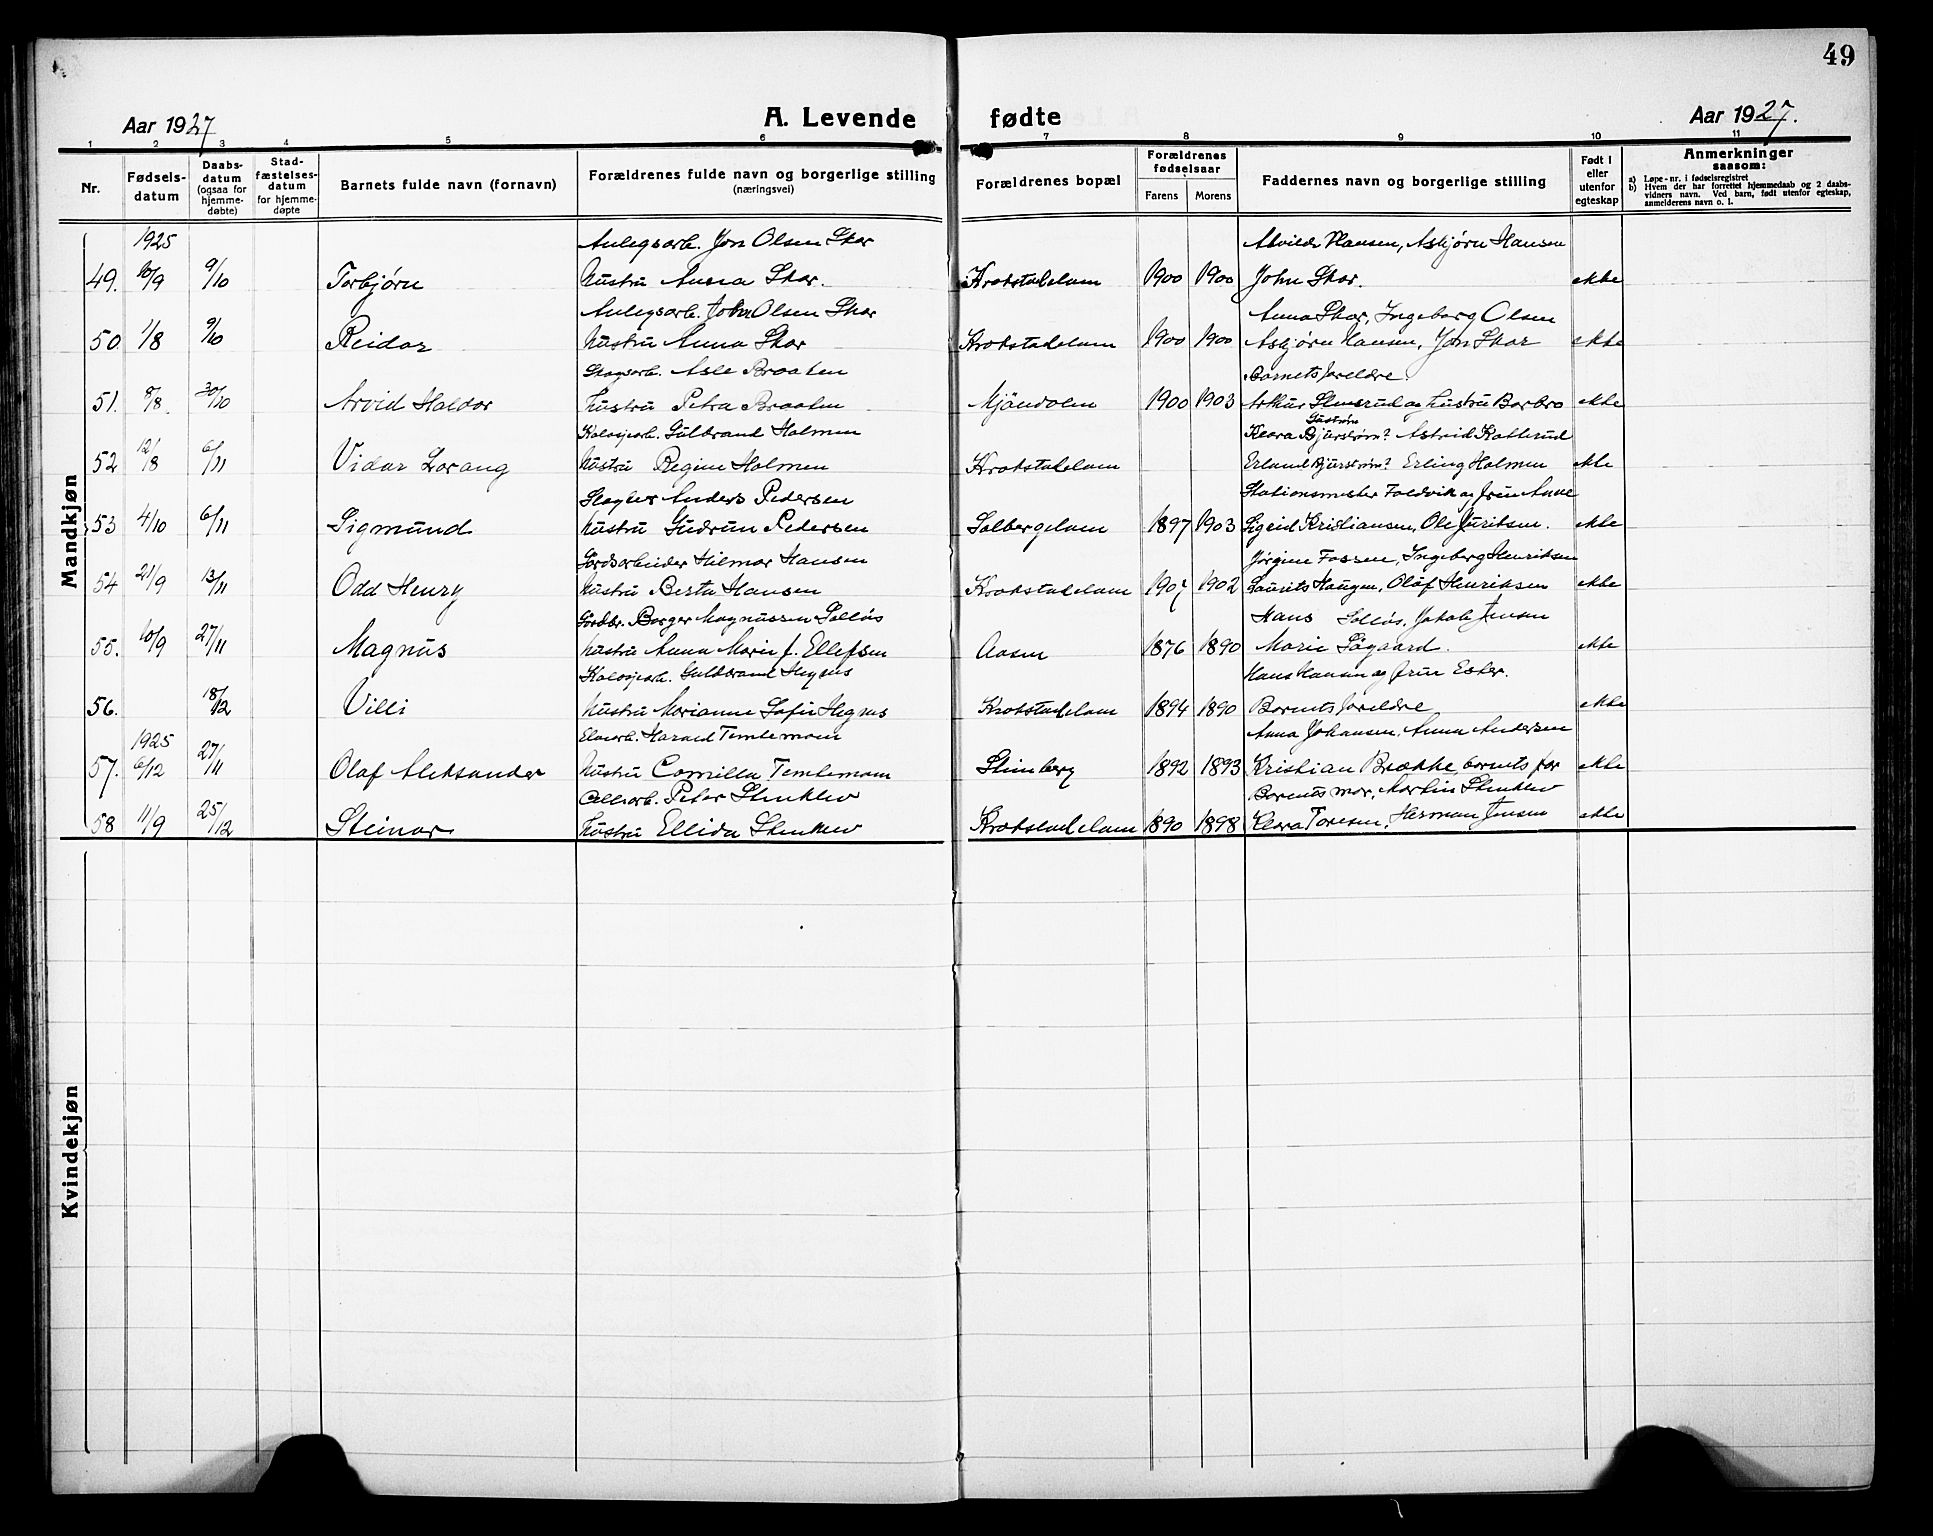 49
Aar 1927
A. Levende fødte
Aar 1927.
1 2 3 4 5 6 7 8 9 10 11
Nr.
Fødsels-datum
Daabs-datum (ogsaa for hjemme-døbte)
Stad-fæstelses-datum for hjemme-døpte
Barnets fulde navn (fornavn)
Forældrenes fulde navn og borgerlige stilling (næringsvei)
Forældrenes bopæl
Forældrenes fødselsaar
Farens Morens
Faddernes navn og borgerlige stilling
Født i eller utenfor egteskap
Anmerkninger saasom:
a) Løpe-nr. i fødselsregistret
b) Hvem der har forrettet hjemmedaab og 2 daabs-
vidners navn. Ved barn, født utenfor egteskap,
anmelderens navn o. l.
Mandkjøn
1925 Anlegsarb. Jon Olsen Skar Alvilde Hansen, Asbjørn Hansen
49. 10/9 9/10 Torbjørn hustru Anna Skar. Krokstadelven 1900 1900 John Skar. ekte
Anlegsarb. John Olsen Skar Anna Skar, Ingeborg Olsen
50 1/8 9/10 Reidar hustru Anna Skar Krokstadelven 1900 1900 Asbjørn Hansen, Jon Skar ekte
Skogsarb. Asle Braaten Barnets foreldre.
51. 8/8 30/10 Arvid Haldor hustru Petra Braaten Mjøndalen 1900 1903 Arthur Slensrud og hustru Borbro ekte
Kalosjearb. Gulbrand Holmen Klara Bjurstrøm? Astrid Kolterud
52 12/8 6/11 Vidar Lorang hustru Regine Holmen Krokstadelven Erland Bjurstrøm? Erling Holmen ekte
Slagter Anders Pedersen Stationsmester Foldvik og frue Anne
53 4/10 6/11 Sigmund hustru Gudrun Pedersen Solbergelven 1897 1903 Sigrid Kristiansen, Ole Juritsen. ekte
Gordsarbeider Hilmar Hansen Jørgine Fossen, Ingeberg Henriksen
54 21/9 13/11 Odd Henry hustru Berta Hansen Krokstadelven 1907 1902 Laurits Haugen, Olaf Henriksen ekte
Gordbr. Borger Magnussen Solløs Hans Solløs, Jakob Jensen
55. 10/9 27/11 Magnus hustru Anna Marie f. Ellefsen Aasen 1876 1890 Marie Løgaard. ekte
Kalosjearb. Guldbrand Hegnus Hans Hansen og frue Ester.
56. 18/12 Villi hustru Marianne Sofie Hegnus Krokstadelven 1894 1890 Barnets foreldre ekte
1925 Harald Temtemann Anna Johansen, Anna Andersen
57. 6/12 27/11 Olaf Aleksander hustru Camilla Temtemann Stenberg 1892 1893 Kristian Brække, barnets far ekte
Cellearb. Peter Stenklev Barnets mor, Martin Stenklev
58 11/9 25/12 Steinar hustru Ellida Stenklev Krokstadelven 1890 1898 Klara Toresen, Herman Jensen ekte
Kvindekjøn